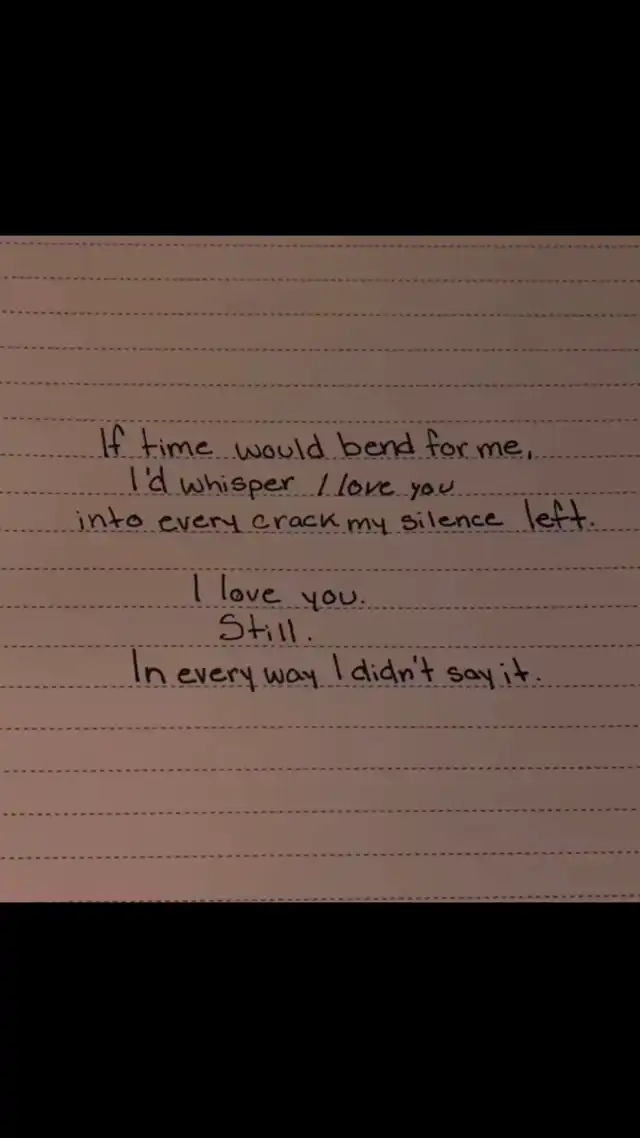 If time would bend for me,
I'd whisper I love you
into every crack my silence left.
I love you.
Still.
In every way I didn't say it.